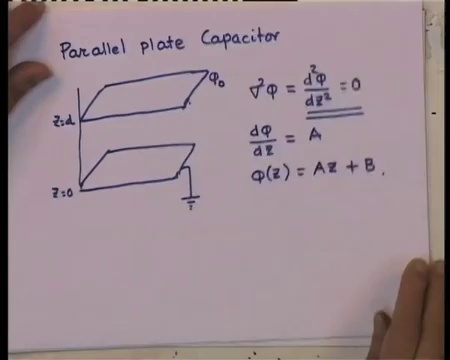 Parallel plate Capacitor
φ₀
z=d
z=0
∇²φ = d²φ/dz² = 0
dφ/dz = A
φ(z) = Az + B.